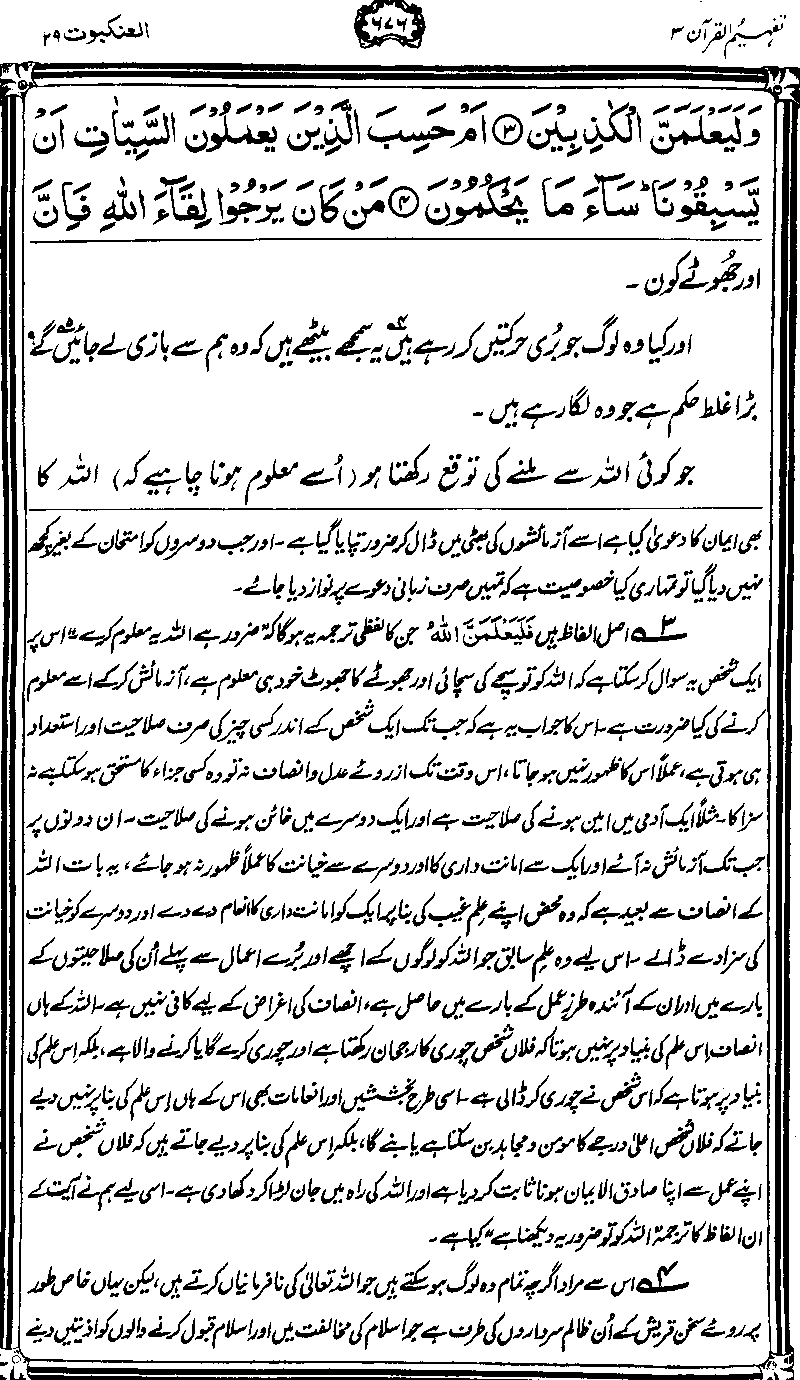 تفہیم القرآن ۳
۶۷۶
العنکبوت ۲۹
وَلَيَعْلَمَنَّ الْكٰذِبِيْنَ ﴿۳﴾ اَمْ حَسِبَ الَّذِيْنَ يَعْمَلُوْنَ السَّيِّاٰتِ اَنْ
يَّسْبِقُوْنَا ؕ سَآءَ مَا يَحْكُمُوْنَ ﴿۴﴾ مَنْ كَانَ يَرْجُوْا لِقَآءَ اللّٰهِ فَاِنَّ
اور جھُوٹے کون ۔
اور کیا وہ لوگ جو بُری حرکتیں کر رہے ہیں۴ یہ سمجھے بیٹھے ہیں کہ وہ ہم سے بازی لے جائیں گے۵؟
بڑا غلط حکم ہے جو وہ لگا رہے ہیں ۔
جو کوئی اللہ سے ملنے کی توقع رکھتا ہو (اُسے معلوم ہونا چاہیے کہ) اللہ کا
بھی ایمان کا دعویٰ کیا ہے اسے آزمائشوں کی بھٹی میں ڈال کر ضرور تپایا گیا ہے ۔ اور جب دوسروں کو امتحان کے بغیر کچھ
نہیں دیا گیا تو تمہاری کیا خصوصیت ہے کہ تمہیں صرف زبانی دعوے پر نواز دیا جائے ۔
۳ اصل الفاظ ہیں فَلَيَعْلَمَنَّ اللّٰهُ جن کا لفظی ترجمہ یہ ہو گا کہ ”ضرور ہے اللہ یہ معلوم کرے“ اس پر
ایک شخص یہ سوال کر سکتا ہے کہ اللہ کو تو سچے کی سچائی اور جھوٹے کا جھوٹ خود ہی معلوم ہے، آزمائش کر کے اسے معلوم
کرنے کی کیا ضرورت ہے ۔ اس کا جواب یہ ہے کہ جب تک ایک شخص کے اندر کسی چیز کی صرف صلاحیت اور استعداد
ہی ہوتی ہے، عملاً اس کا ظہور نہیں ہو جاتا، اس وقت تک ازروئے عدل و انصاف نہ تو وہ کسی جزاء کا مستحق ہو سکتا ہے نہ
سزا کا ۔ مثلاً ایک آدمی میں امین ہونے کی صلاحیت ہے اور ایک دوسرے میں خائن ہونے کی صلاحیت ۔ ان دونوں پر
جب تک آزمائش نہ آئے اور ایک سے امانت داری کا اور دوسرے سے خیانت کا عملاً ظہور نہ ہو جائے، یہ بات اللہ
کے انصاف سے بعید ہے کہ وہ محض اپنے علمِ غیب کی بنا پر ایک کو امانت داری کا انعام دے دے اور دوسرے کو خیانت
کی سزا دے ڈالے ۔ اس لیے وہ علمِ سابق جو اللہ کو لوگوں کے اچھے اور بُرے اعمال سے پہلے اُن کی صلاحیتوں کے
بارے میں اور ان کے آئندہ طرزِ عمل کے بارے میں حاصل ہے، انصاف کی اغراض کے لیے کافی نہیں ہے ۔ اللہ کے ہاں
انصاف اِس علم کی بنیاد پر نہیں ہوتا کہ فلاں شخص چوری کا رجحان رکھتا ہے اور چوری کرے گا یا کرنے والا ہے، بلکہ اِس علم کی
بنیاد پر ہوتا ہے کہ اس شخص نے چوری کر ڈالی ہے ۔ اسی طرح بخششیں اور انعامات بھی اس کے ہاں اِس علم کی بنا پر نہیں دیے
جاتے کہ فلاں شخص اعلیٰ درجے کا مومن و مجاہد بن سکتا ہے یا بنے گا، بلکہ اِس علم کی بنا پر دیے جاتے ہیں کہ فلاں شخص نے
اپنے عمل سے اپنا صادق الایمان ہونا ثابت کر دیا ہے اور اللہ کی راہ میں جان لڑا کر دکھا دی ہے ۔ اسی لیے ہم نے آیت کے
ان الفاظ کا ترجمہ ”اللہ کو تو ضرور یہ دیکھنا ہے“ کیا ہے ۔
۴ اس سے مراد اگرچہ تمام وہ لوگ ہو سکتے ہیں جو اللہ تعالیٰ کی نافرمانیاں کرتے ہیں، لیکن یہاں خاص طور
پر روئے سخن قریش کے اُن ظالم سرداروں کی طرف ہے جو اسلام کی مخالفت میں اور اسلام قبول کرنے والوں کو اذیتیں دینے